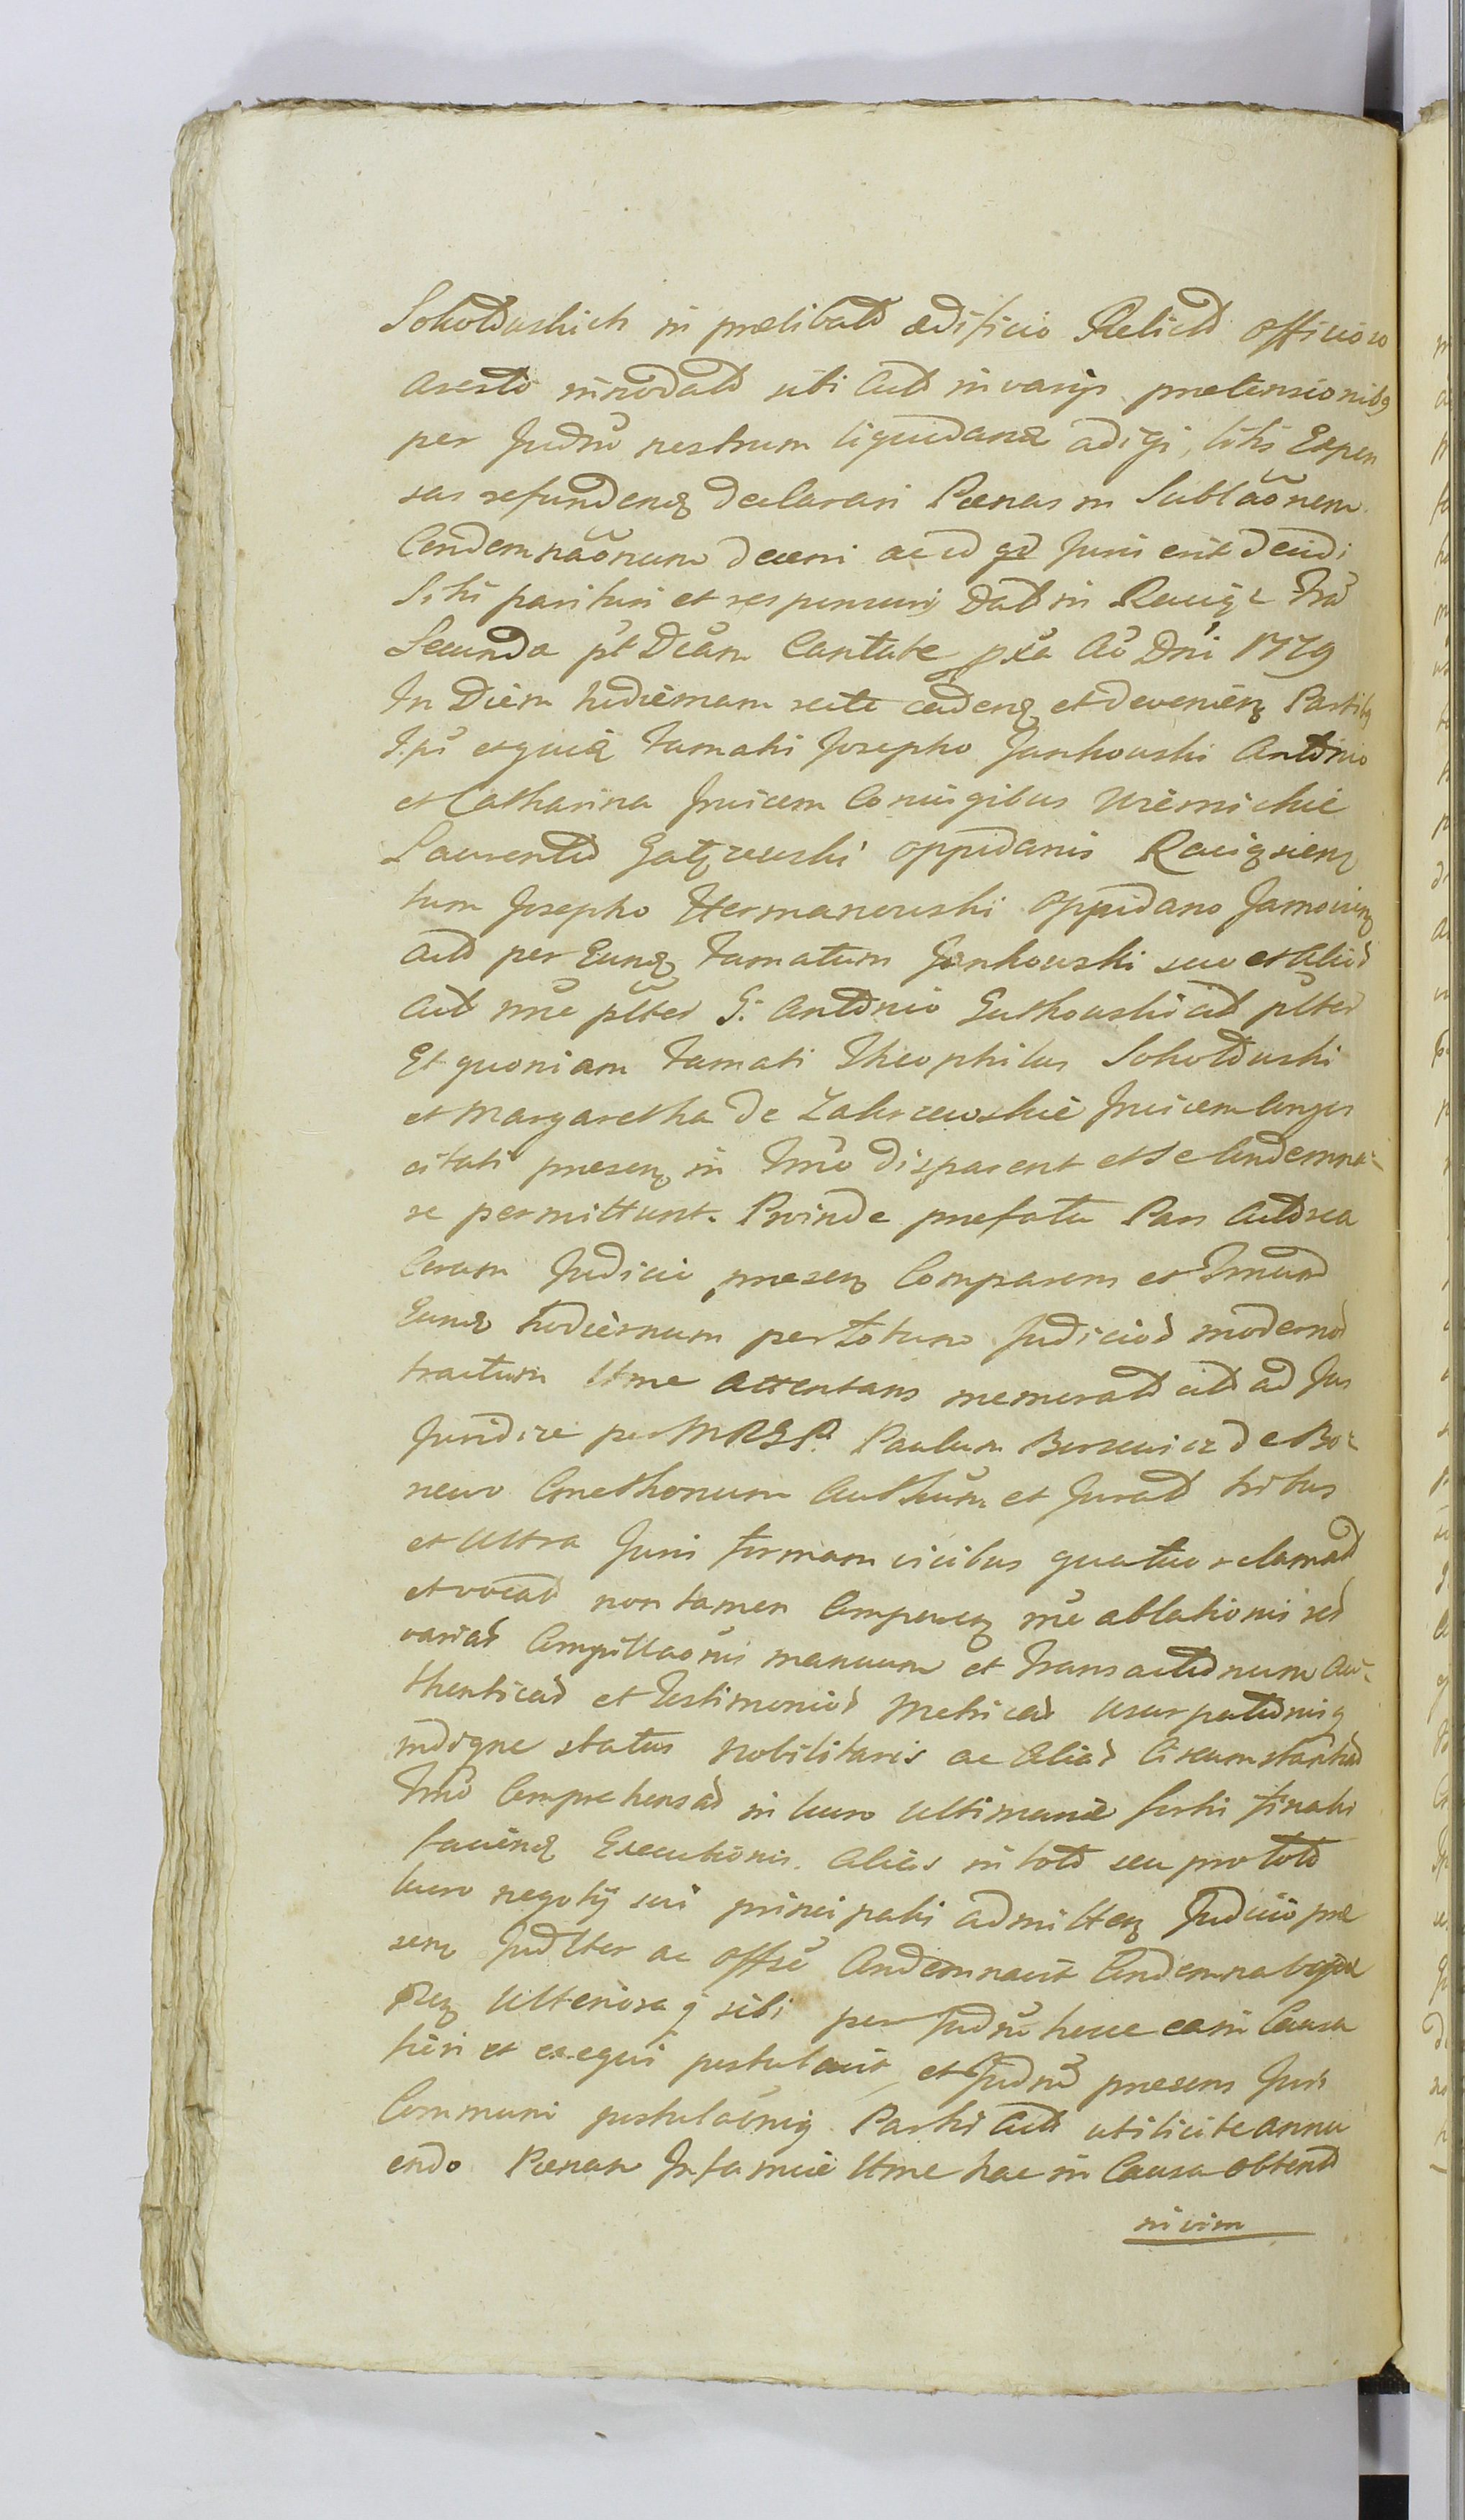 Sokołdwskich in prælibato ædificio Relicto officioso
aresto innodato sibi Acto in varijs prætensionibq
per Judm̄ nostrum liquidanda adigi, litis Expen
sas refundendq declarari Pœnas in Sublaõnem
Condemnãonum decerni ac id qd Juris erit decidi
Sitis parituri et responsuri Dat in Raciąż Fra
Secunda pt Dcam Cantate pxa Ao Dni 1779
In Diem hodiernam recte cadenq et devenienq Partibq
Ipsis et quidem Famatis Josepho Jankowski Antonio
et Catharina Invicem Coniugibus
Laurentio oppidanis Raciązienq
tum Josepho Hermanowski oppidano
acto per Eunq Famatum Jankowski suo et alior
act nne plter G. Antonio Gutkowski cit plter
Et quoniam Famati Theophilus Sokołowski
et Margaretha de Zakrzewskie Invicem Conjges
citati præsenq in Tmo disparent et se Condemna-
re permittunt. Proinde præfata Pars Actorea
Coram Judicio præsenq Comparens et Tmum
Eunq hodiernum per totum Judicior modernor
tractum ltme attentans memorato cito ad Jus
Juridice per MRGP. Paulum de Bo-
newo Conethonum et Jurato tribus
et ultra Juris formam vicibus quatuor clamato
et vocato non tamen Comparenq ne ablationis sed
variar Compillaõnis manuum et Transactionum au-
thenticar et Testimonior Metricar usurpationisq
indigne status Nobilitaris ac aliar Circumstantiar
Tmo Comprehensar in lucro ultimaria sorti finali
facienq Executionis. alias in toto seu pro toto
lucro negotij sui principalis admittenq Judicio præ
senq Judlter ac offse Condemnavit Condemnatoqque
Ulterioraq sibi per Judm hocce ea in Causa
fieri et exequi postulavit, et Judm præsens Juri
Communi postulaõniq Partis Acto utilicite annu
endo Pœnam Infamiæ ltme hac in Causa obtento
ni vim